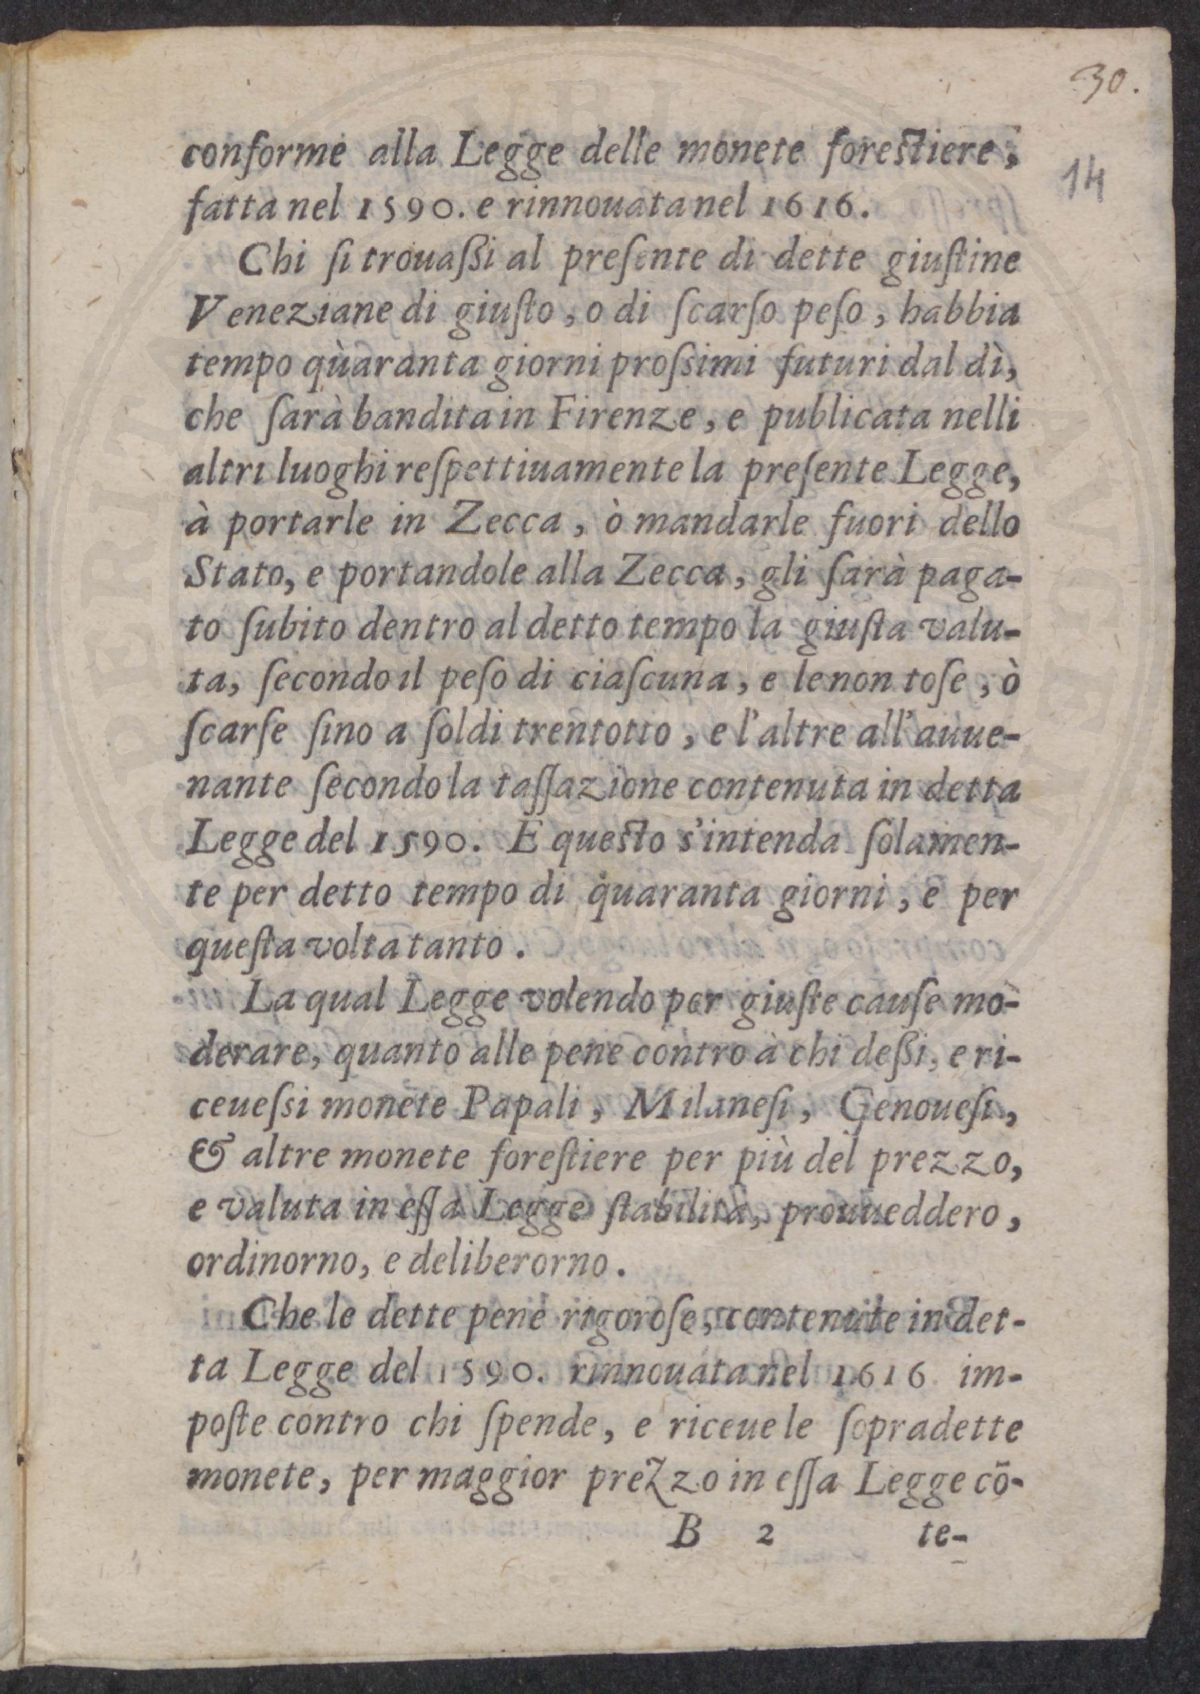 30.
14
conforme alla Legge delle monete forestiere,
fatta nel 1590. e rinnouata nel 1616.
Chi ſi trouaßi al preſente di dette giuſtine
Veneziane di giuſto, o di ſcarſo peſo, habbia
tempo quàranta giorni proſsimi futuri dal dì,
che ſarà bandita in Firenze, e publicata nelli
altri luoghi reſpettiuamente la preſente Legge,
à portarle in Zecca, ò mandarle fuori dello
Stato, e portandole alla Zecca, gli ſarà paga-
to ſubito dentro al detto tempo la giuſta valu-
ta, ſecondo il peſo di ciaſcuna, e le non toſe, ò
ſcarſe ſino a ſoldi trentotto, e l'altre all'auue-
nante ſecondo la taſſazione contenuta in detta
Legge del 1590. E questo s'intenda ſolamen-
te per detto tempo di quaranta giorni, e per
queſta volta tanto.
La qual Legge volendo per giuſte cauſe mo-
derare, quanto alle pene contro a chi deßi, e ri-
ceueſsi monete Papali, Milaneſi, Genoueſi,
& altre monete foreſtiere per più del prezzo,
e valuta in eſſa Legge ſtabilita, prouueddero,
ordinorno, e deliberorno.
Che le dette pene rigoroſe, contenute in det-
ta Legge del 1590. rinnouata nel 1616 im-
poſte contro chi ſpende, e riceue le ſopradette
monete, per maggior prezzo in eſſa Legge cō-
B 2 te-